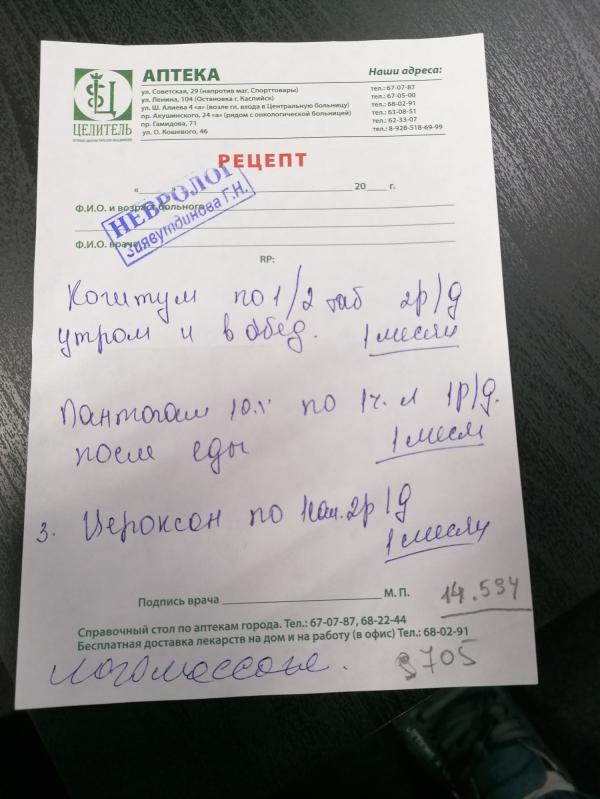 ЦЕЛИТЕЛЬ
АПТЕКА
Наши адреса:
ул. Советская, 29 (напротив маг. Спорттовары) тел.: 67-07-87
ул. Ленина, 104 (Остановка г. Каспийск) тел.: 67-05-00
ул. Ш. Алиева 4 «а» (возле гл. входа в Центральную больницу) тел.: 68-02-91
пр. Акушинского, 24 «а» (рядом с онкологической больницей) тел.: 63-08-51
пр. Гамидова, 71 тел.: 62-33-07
ул. О. Кошевого, 46 тел.: 8-928-518-69-99
РЕЦЕПТ
«____» 20___ г.
НЕВРОЛОГ
Зиявутдинова Г.Н.
Ф.И.О. и возраст больного
Ф.И.О. врача
RP:
Когитум по 1/2 таб 2р/д
утром и в обед. 1 месяц
Пантогам 10% по 1ч.л 1р/д.
после еды 1 месяц
3. Цероксон по 1 2р/д
1 месяц
Подпись врача М. П.
14.534
Справочный стол по аптекам города. Тел.: 67-07-87, 68-22-44
Бесплатная доставка лекарств на дом и на работу (в офис) Тел.: 68-02-91
логомассаж.
3705